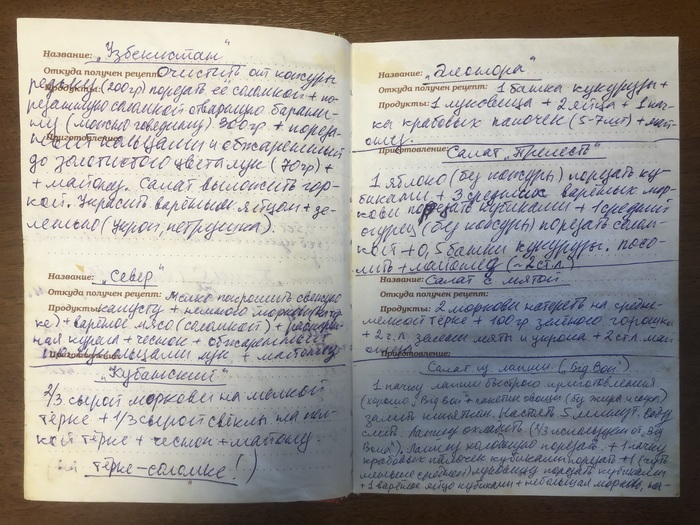 Название: "Узбекистан"
Откуда получен рецепт: Очистить от кожуры
Продукты: редьку (200гр) порезать её соломкой + по-
резанную соломкой отварную барани-
ну (можно говядину) 300гр + пореза-
Приготовление: кольцами и обжаренный
до золотистого цвета лук (70гр) +
+ майонез. Салат выложить гор-
кой. Украсить варёным яйцом + зе-
ленью (укроп, петрушка).
Название: "Север"
Откуда получен рецепт: Мелко покрошить свежую
Продукты: капусту + немного моркови
ке) + варёное мясо (соломкой) +
ная курага + чеснок + обжаренный
Приготовление: кольцами лук + майонез
"Кубанский"
2/3 сырой моркови на мелкой
тёрке + 1/3 сырой свёклы на мел-
кой тёрке + чеснок + майонез.
тёрке-соломке!)
Название: "Элеонора"
Откуда получен рецепт: 1 банка кукурузы +
Продукты: 1 луковица + 2 яйца + 1 пач-
ка крабовых палочек (5-7шт) + май-
онез.
Приготовление: Салат "Прелесть"
1 яблоко (без кожуры) порезать ку-
биками + 3 средних варёных мор-
кови порезать кубиками + 1 средний
огурец (без кожуры) порезать солом-
кой + 0,5 банки кукурузы. Посо-
лить + майонез (~2ст.л.)
Название: Салат с мятой
Откуда получен рецепт:
Продукты: 2 моркови натереть на средне-
мелкой тёрке + 100гр зелёного горошка
+ 2 ч.л. зелени мяты и укропа + 2ст.л. май
Приготовление:
Салат из лапши ("Big Bon")
1 пачку лапши быстрого приготовления
(хорошо, Big Bon + пакетик овощи (без жира и соуса)
залить кипятком. Настоять 5 минут. Воду
слить. Лапшу охладить (1/3 используем от Big
Bona). Лапшу холодную порезать. + 1 пачку
крабовых палочек кубиками порезать + 1 (чуть
меньше средней) луковицу порезать кубиками
+ 1 варёное яйцо кубиками + небольшая морковь, на-